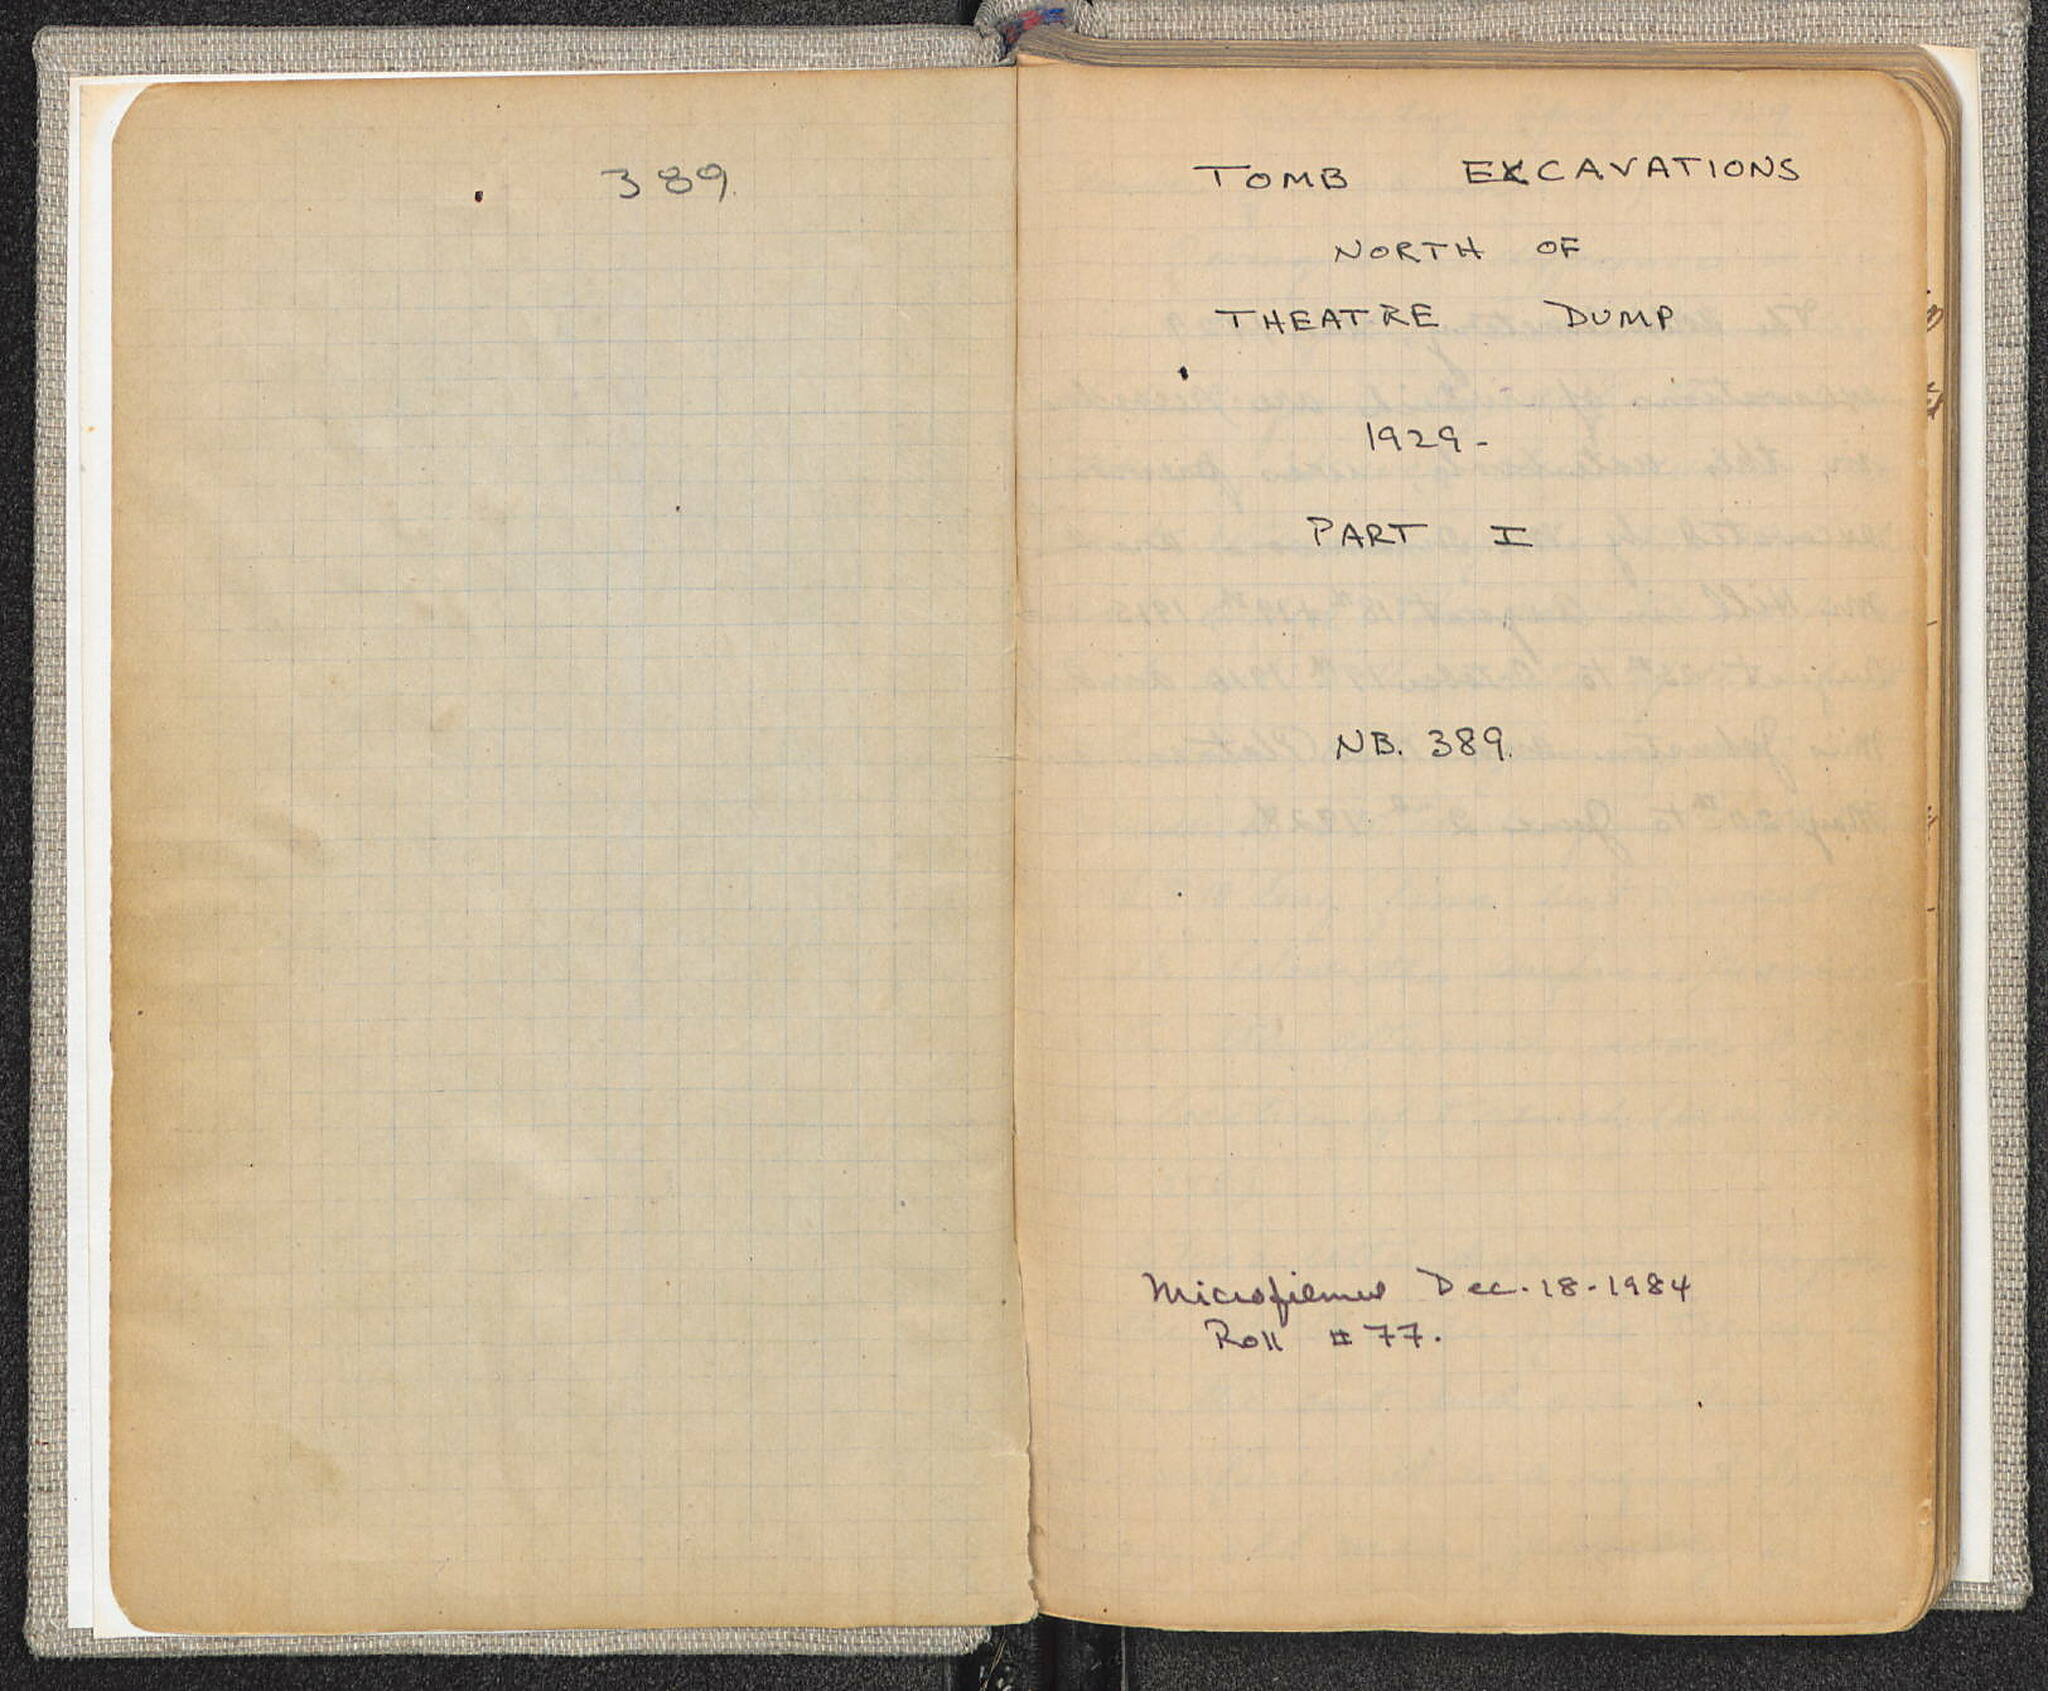 389.
TOMB EXCAVATIONS
NORTH OF
THEATRE DUMP
1929-
PART I
NB. 389.
Microfilmed Dec. 18 - 1984
Roll # 77.